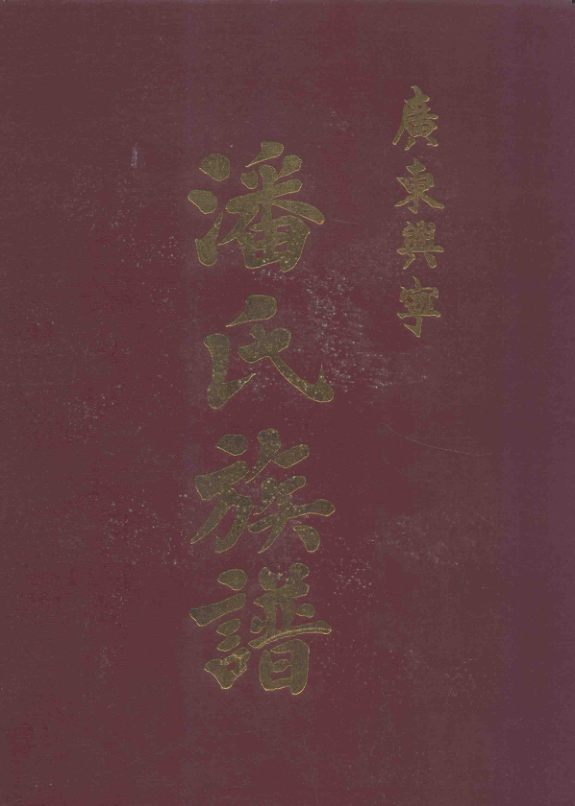 廣東興寧
潘氏族譜